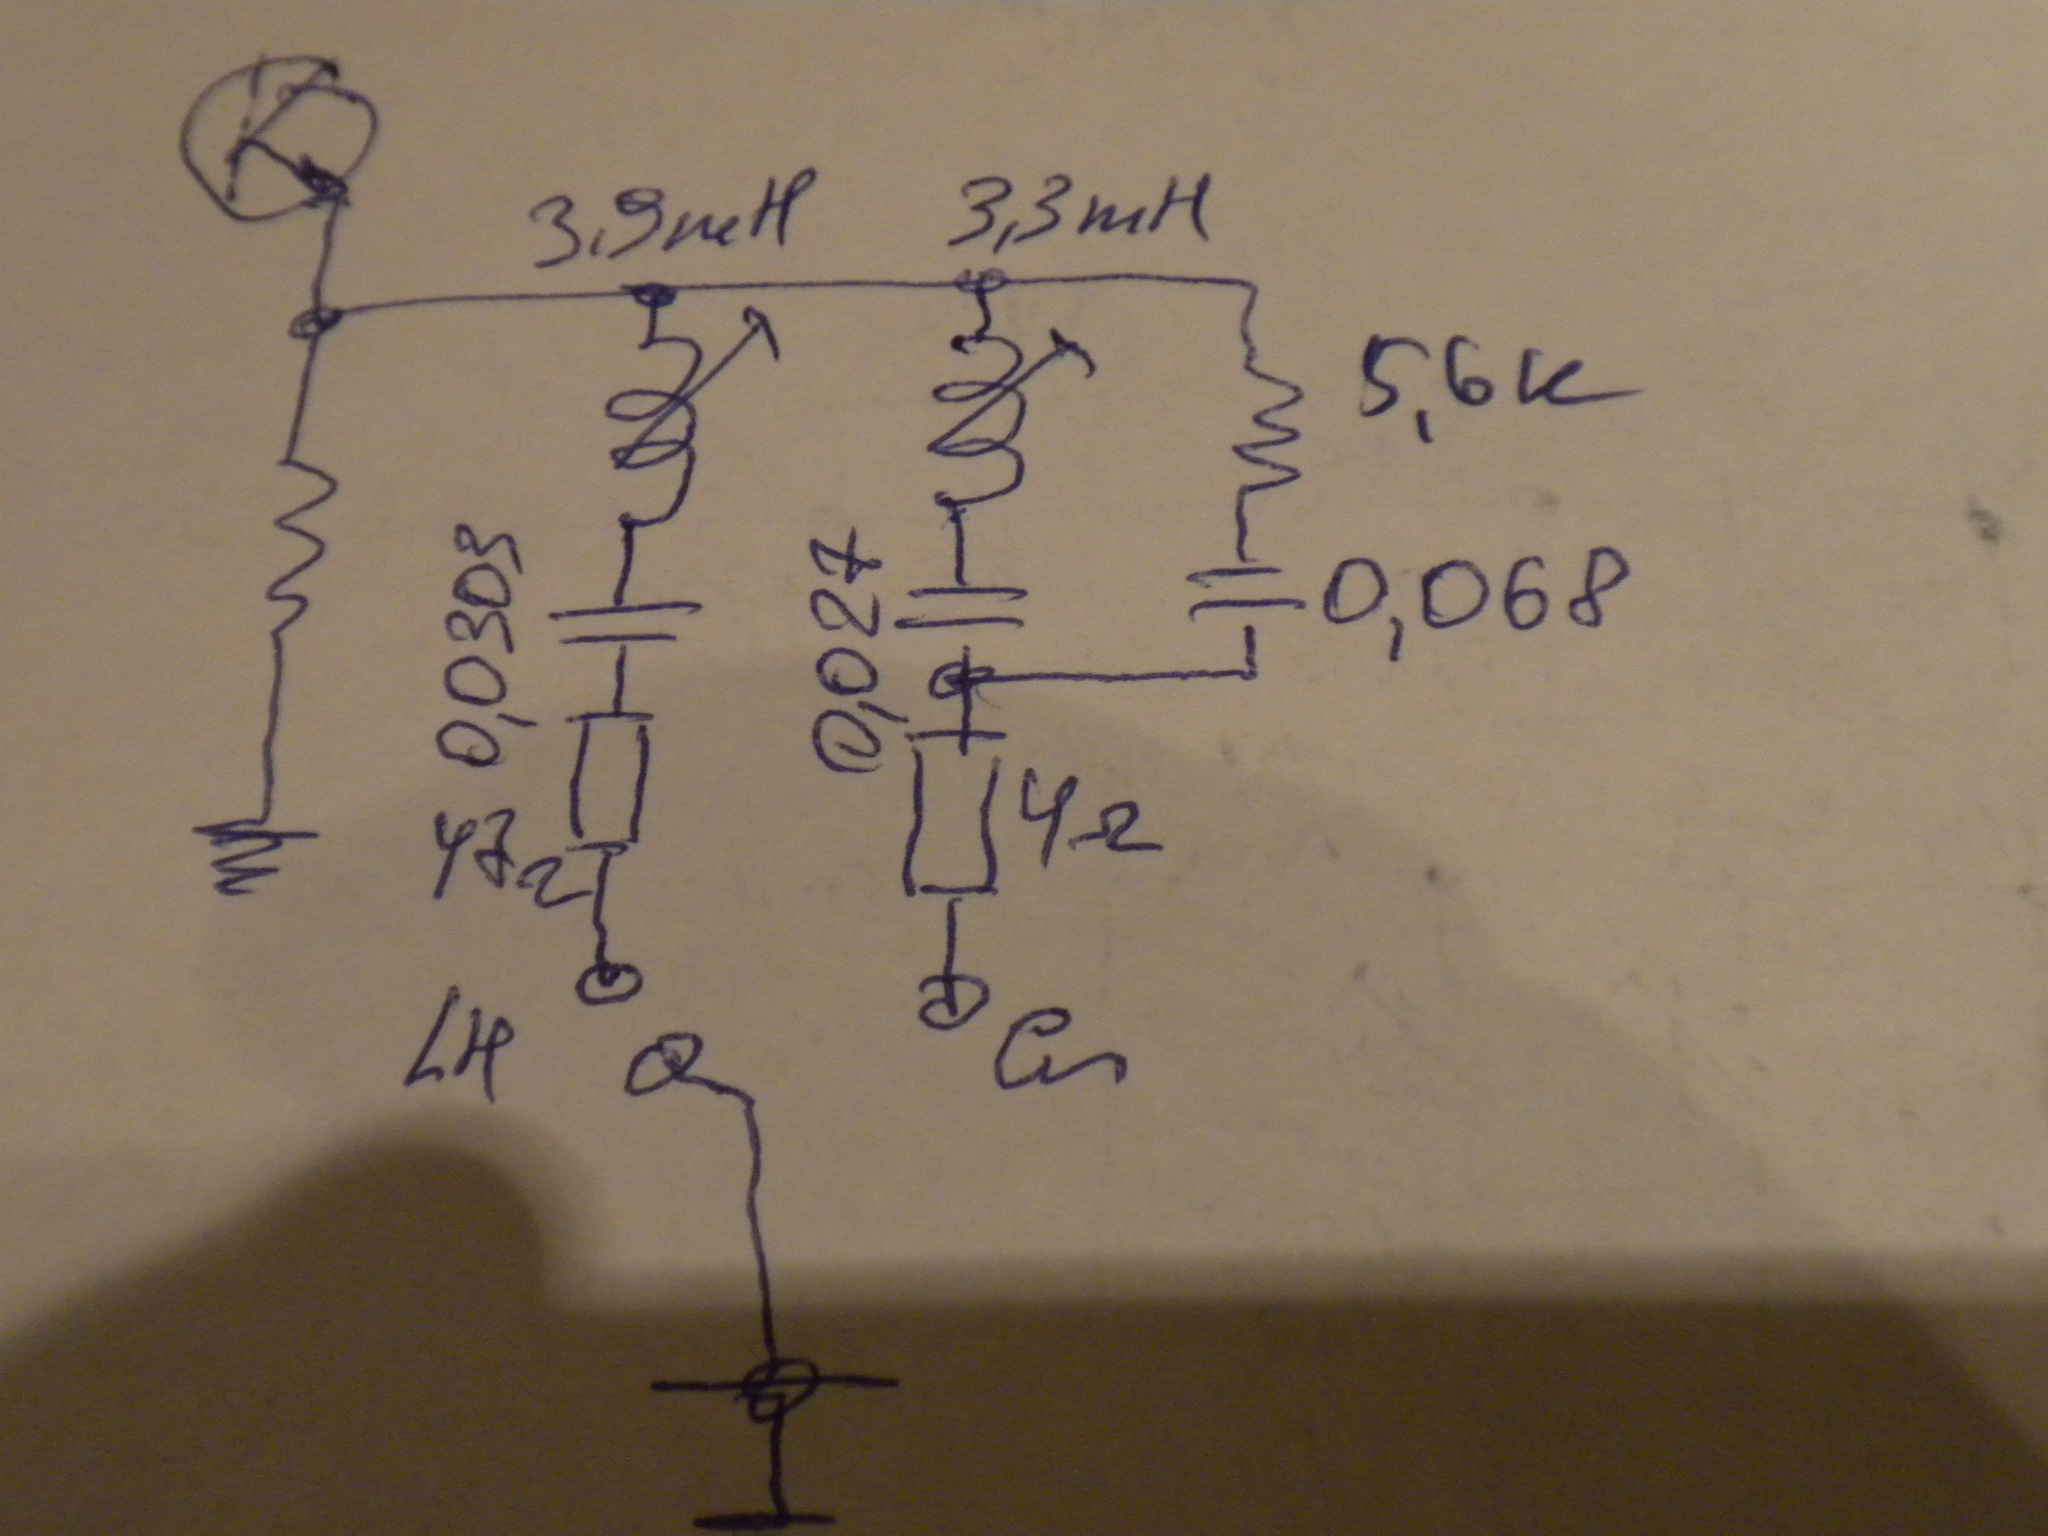 3,9mH
3,3mH
5,6K
0,0303
0,027
0,068
4Ω
LH